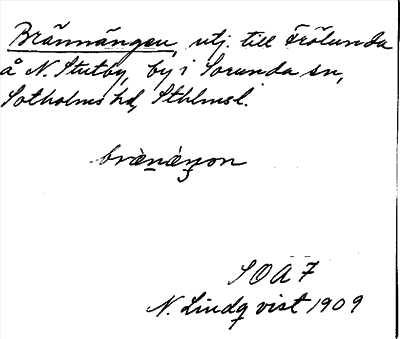 Brännängen, utj. till Frölunda
å N. Stutby, by i Sorunda sn,
Sotholms hd, Sthlmsl.
brænæŋon
SOA 7
N. Lindqvist 1909